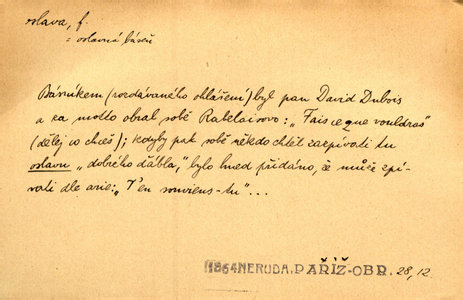 oslava, f.
= oslavná báseň
Básníkem (rozdávaného ohlášení) byl pan David Dubois
a za motto obral sobě Rabelaisovo: „Fais ce que vouldras"
(dělej co chceš); kdyby pak sobě někdo chtěl zazpívati tu
oslavu „dobrého ďábla," bylo hned přidáno, že může zpí-
vati dle arie: „T'en souviens-tu"...
1864 NERUDA, PAŘÍŽ-OBR. 28, 12.